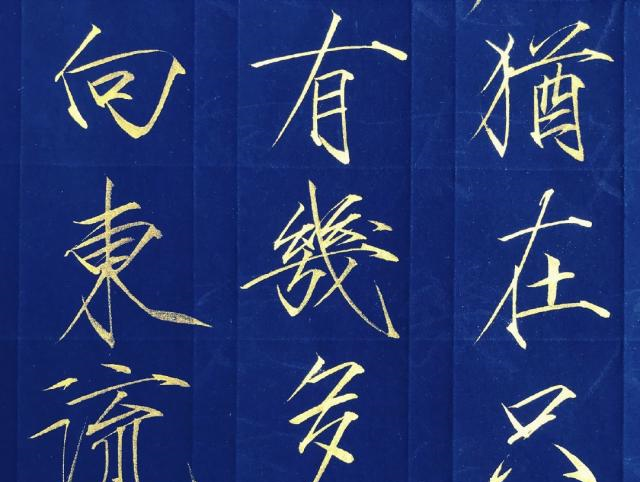 猶在只
有幾多
向東流